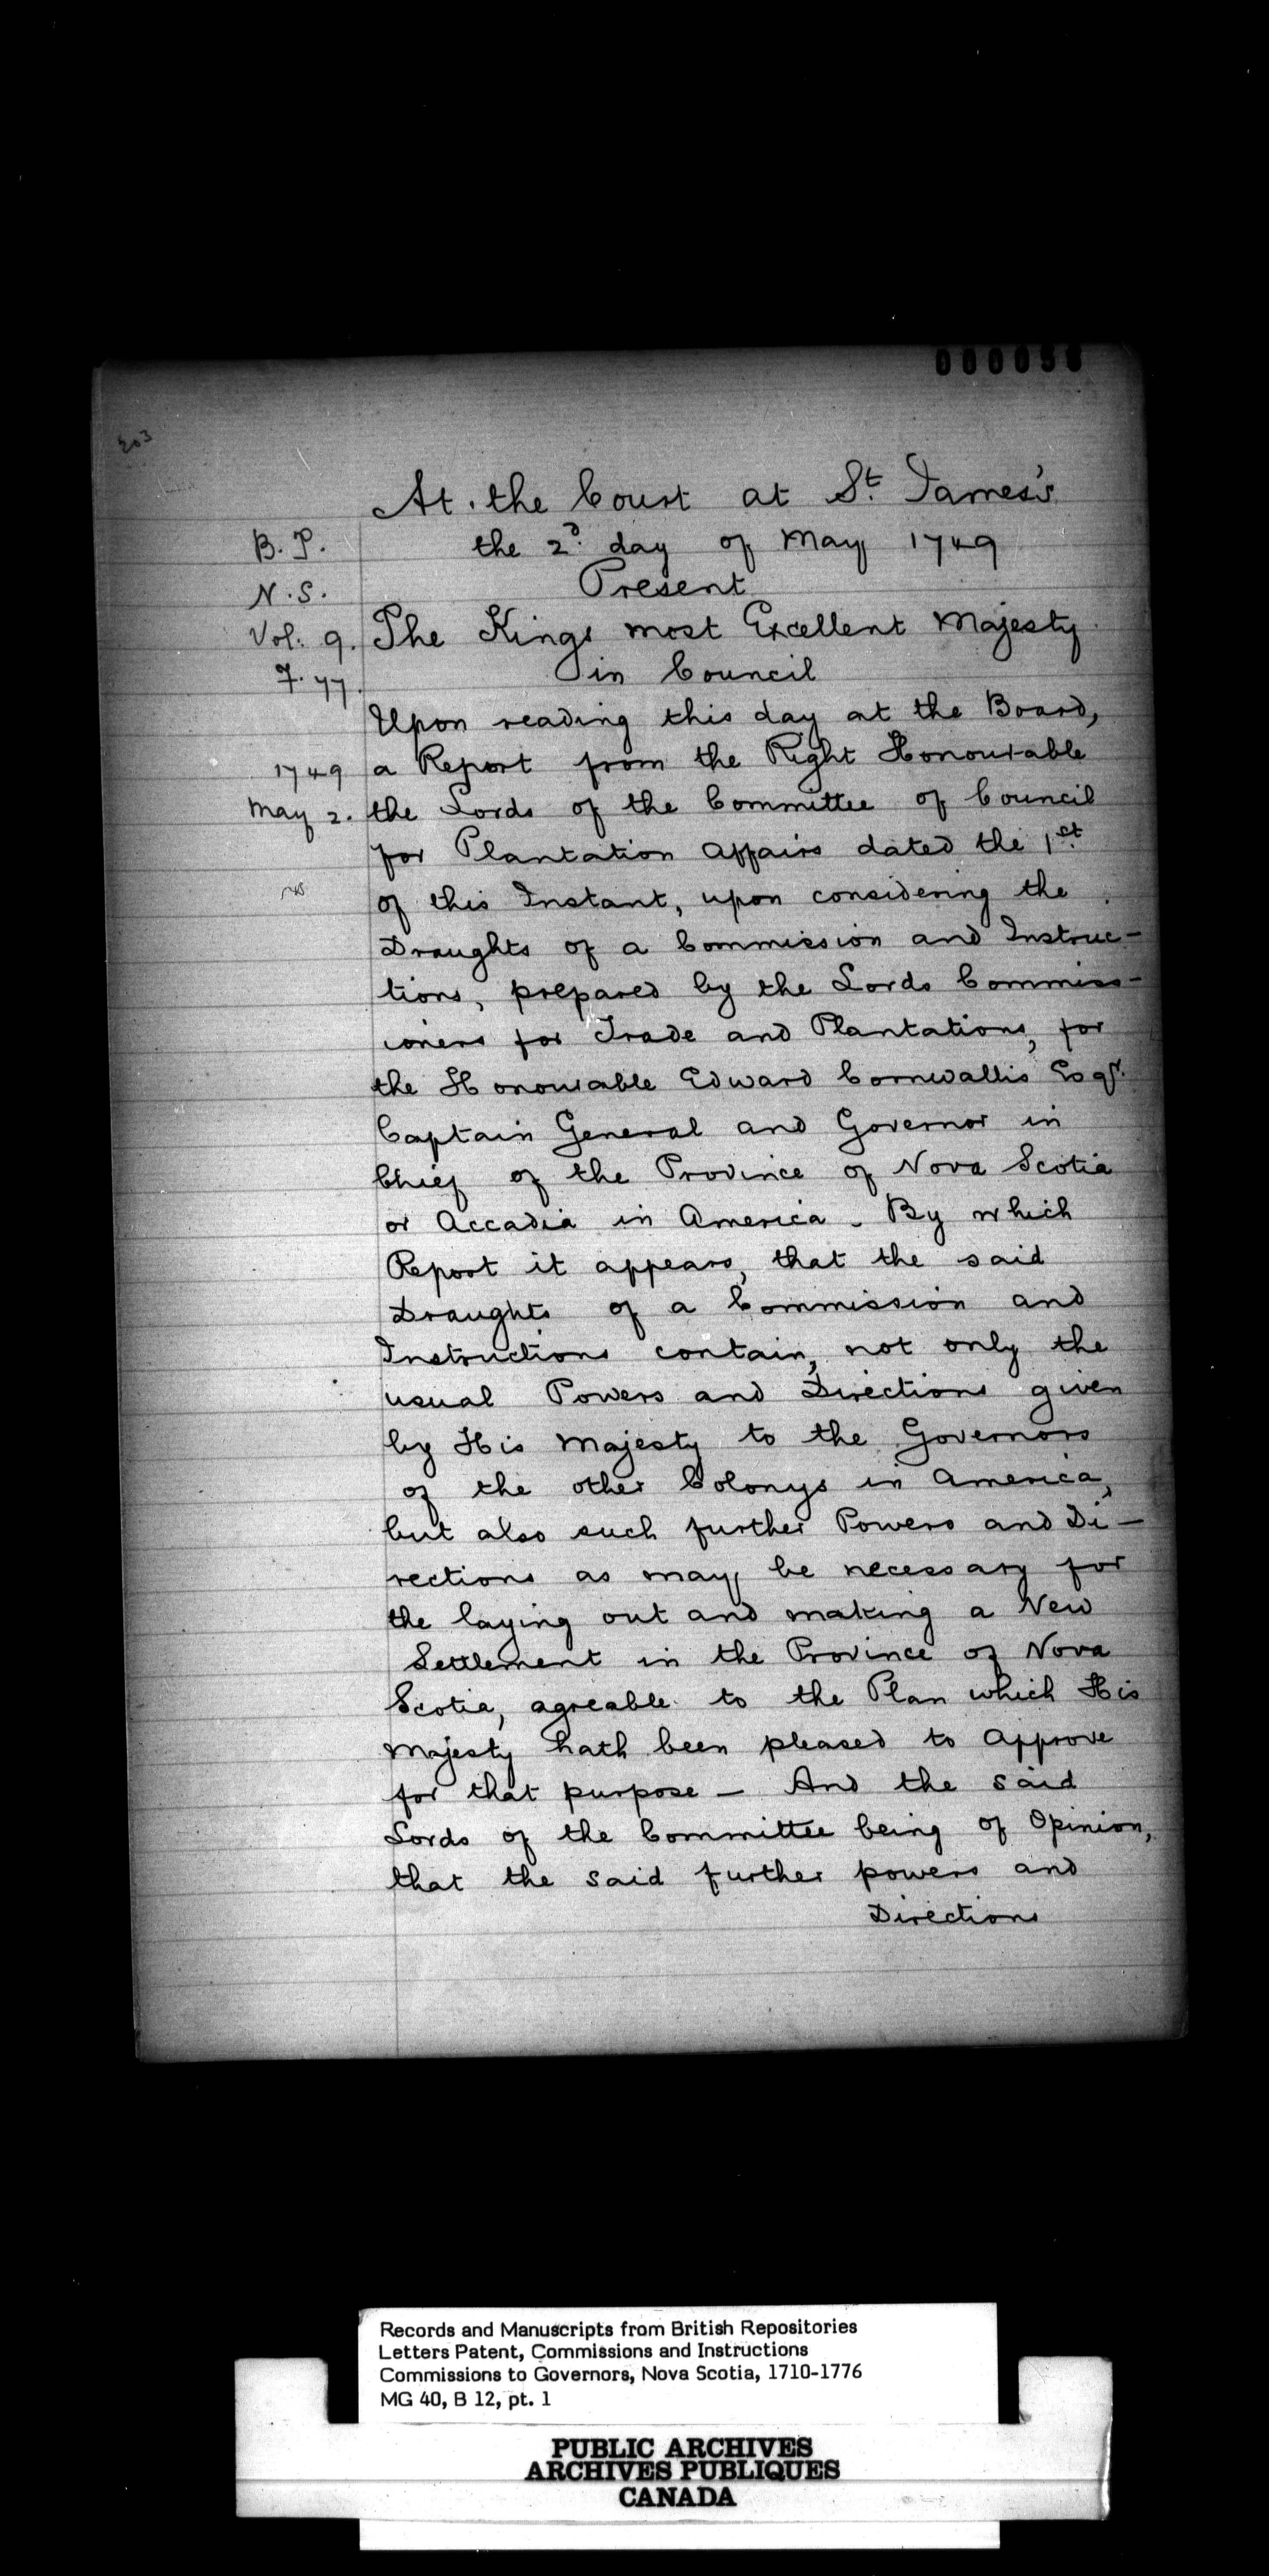 000058
203
At the Court at St. James's
B. T.
the 2d. day of May 1749
N. S.
Present
Vol: 9.
The Kings most Excellent Majesty
F. 77.
in Council
Upon reading this day at the Board,
1749
a Report from the Right Honourable
May 2.
the Lords of the Committee of Council
for Plantation Affairs dated the 1st.
of this Instant, upon considering the
Draughts of a Commission and Instruc-
tions, prepared by the Lords Commiss-
ioners for Trade and Plantations, for
the Honourable Edward Cornwallis Esqr.
Captain General and Governor in
Chief of the Province of Nova Scotia
or Accadia in America. By which
Report it appears, that the said
Draughts of a Commission and
Instructions contain, not only the
usual Powers and Directions given
by His Majesty to the Governors
of the other Colonys in America,
but also such further Powers and Di-
rections as may be necessary for
the laying out and making a New
Settlement in the Province of Nova
Scotia, agreable to the Plan which His
Majesty hath been pleased to Approve
for that purpose — And the said
Lords of the Committee being of Opinion,
that the said further powers and
Directions
Records and Manuscripts from British Repositories
Letters Patent, Commissions and Instructions
Commissions to Governors, Nova Scotia, 1710-1776
MG 40, B 12, pt. 1
PUBLIC ARCHIVES
ARCHIVES PUBLIQUES
CANADA